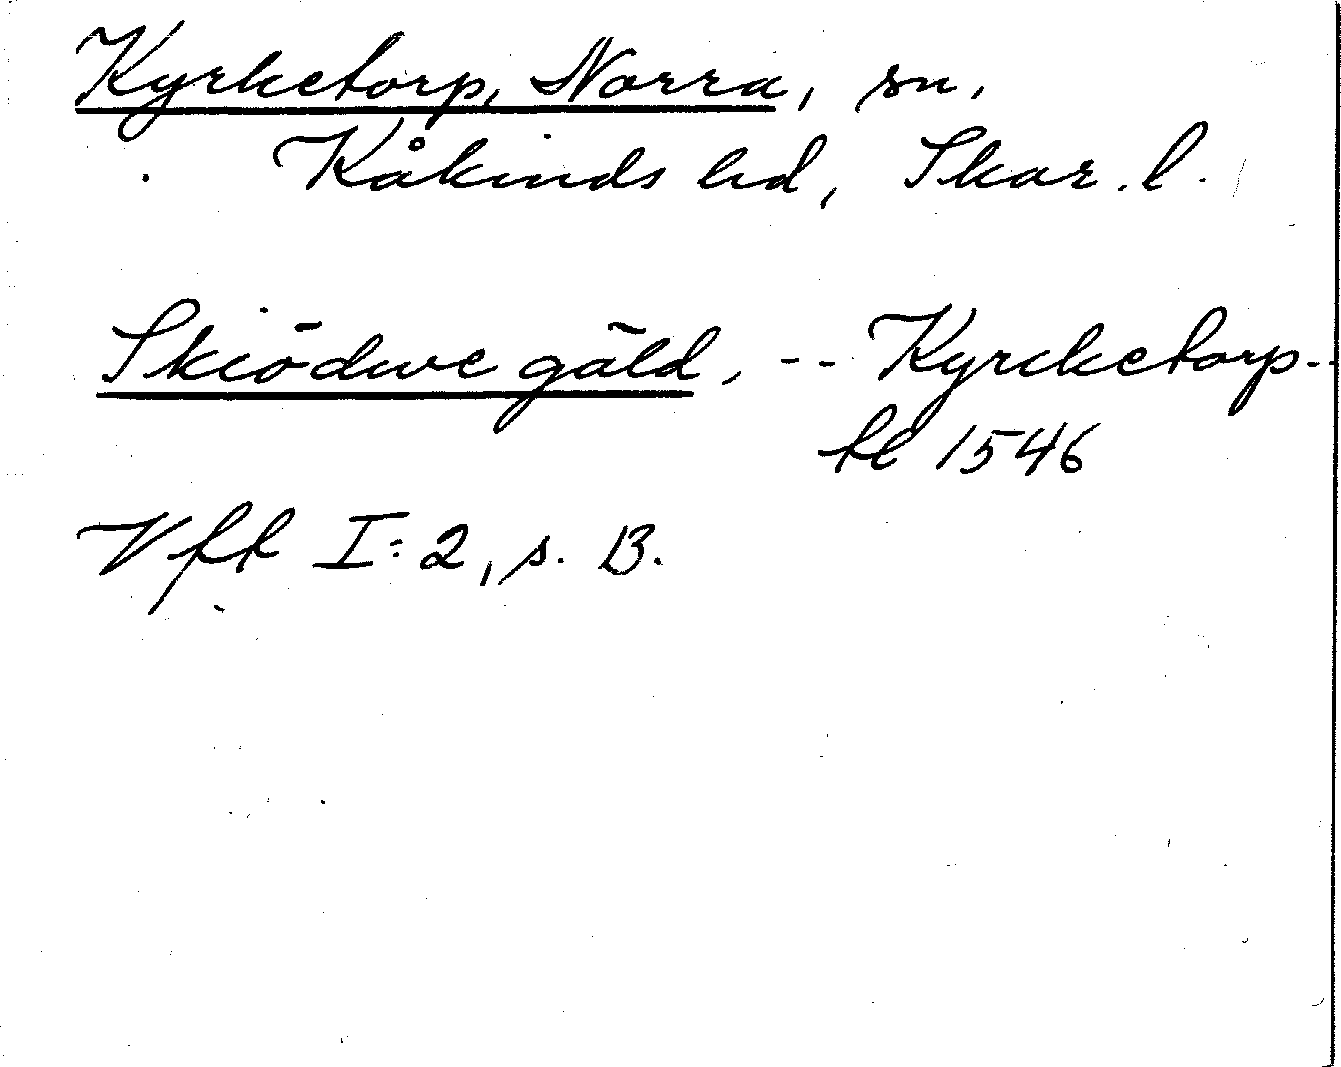 Kyrketorp, Norra, sn,
Kåkinds hd, Skar. l.
Skiödwe gäld, -- Kyrcketorp--
fl 1546
Vfk I:2, s. 13.